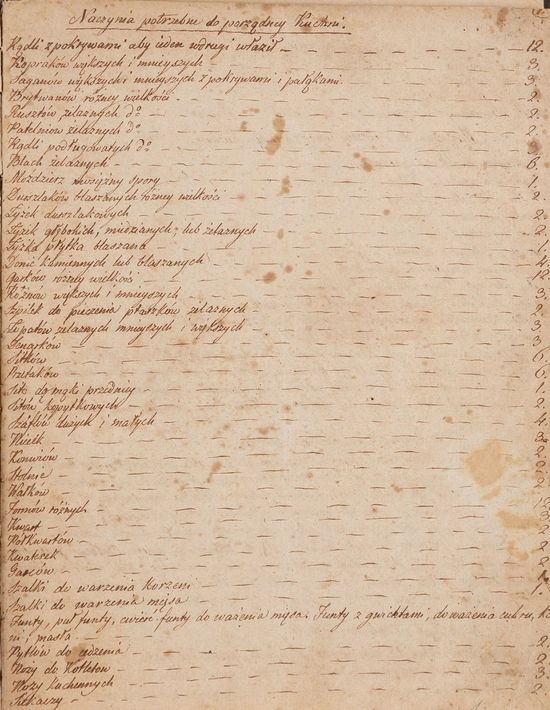 Naczynia potrzebne do porządney Kuchni.
Rądli z pokrywami aby ieden w drugi właził — 12.
Kopraków wyższych i mnieyszych — 3.
Saganów większych i mnieyszych z pokrywami i pałąkami. — 3.
Brytwanów różney wielkości. — 2.
Rusztów żelaznych do — 2.
Patelniów żelaznych do — 2.
Rądli podługowatych do
Blach żelaznych — 6.
Moździerz mosiężny spory — 1.
Durszlaków blaszanych różney wielkości — 2.
Łyżek durszlakowych — 2.
Łyżek głębokich, miedzianych, lub żelaznych — 2.
Łyżka płytka blaszana — 1.
Donic kamiennych lub blaszanych — 4.
Garków różney wielkości — 12.
Rożnow wyższych i mnieyszych — 3.
Szpilek do pieczenia ptaszków żelaznych — 2.
Łopatów żelaznych mnieyszych i wyższych — 3.
Denarków — 3.
Sitków — 6.
Przetaków — 6.
Sito do mąki przedniey — 1.
Sitów kopytkowych — 2.
Szaflów dużych i małych — 4.
Niecek — 3.
Konwiów — 2.
Stolnic
Wałków
Formów różnych
Kwart
Półkwartów
Kwaterek
Garców
Szalki do warzenia korzeni
Szalki do warzenia mięsa
Funty, puł funty, ćwierć funty do ważenia mięsa. Funty z gwichtami, do ważenia cukru,
ni i masła
Pytlów do cedzenia — 2.
Noży do Kotletów — 2.
Noży kuchennych — 3.
Siekaczy — 2.